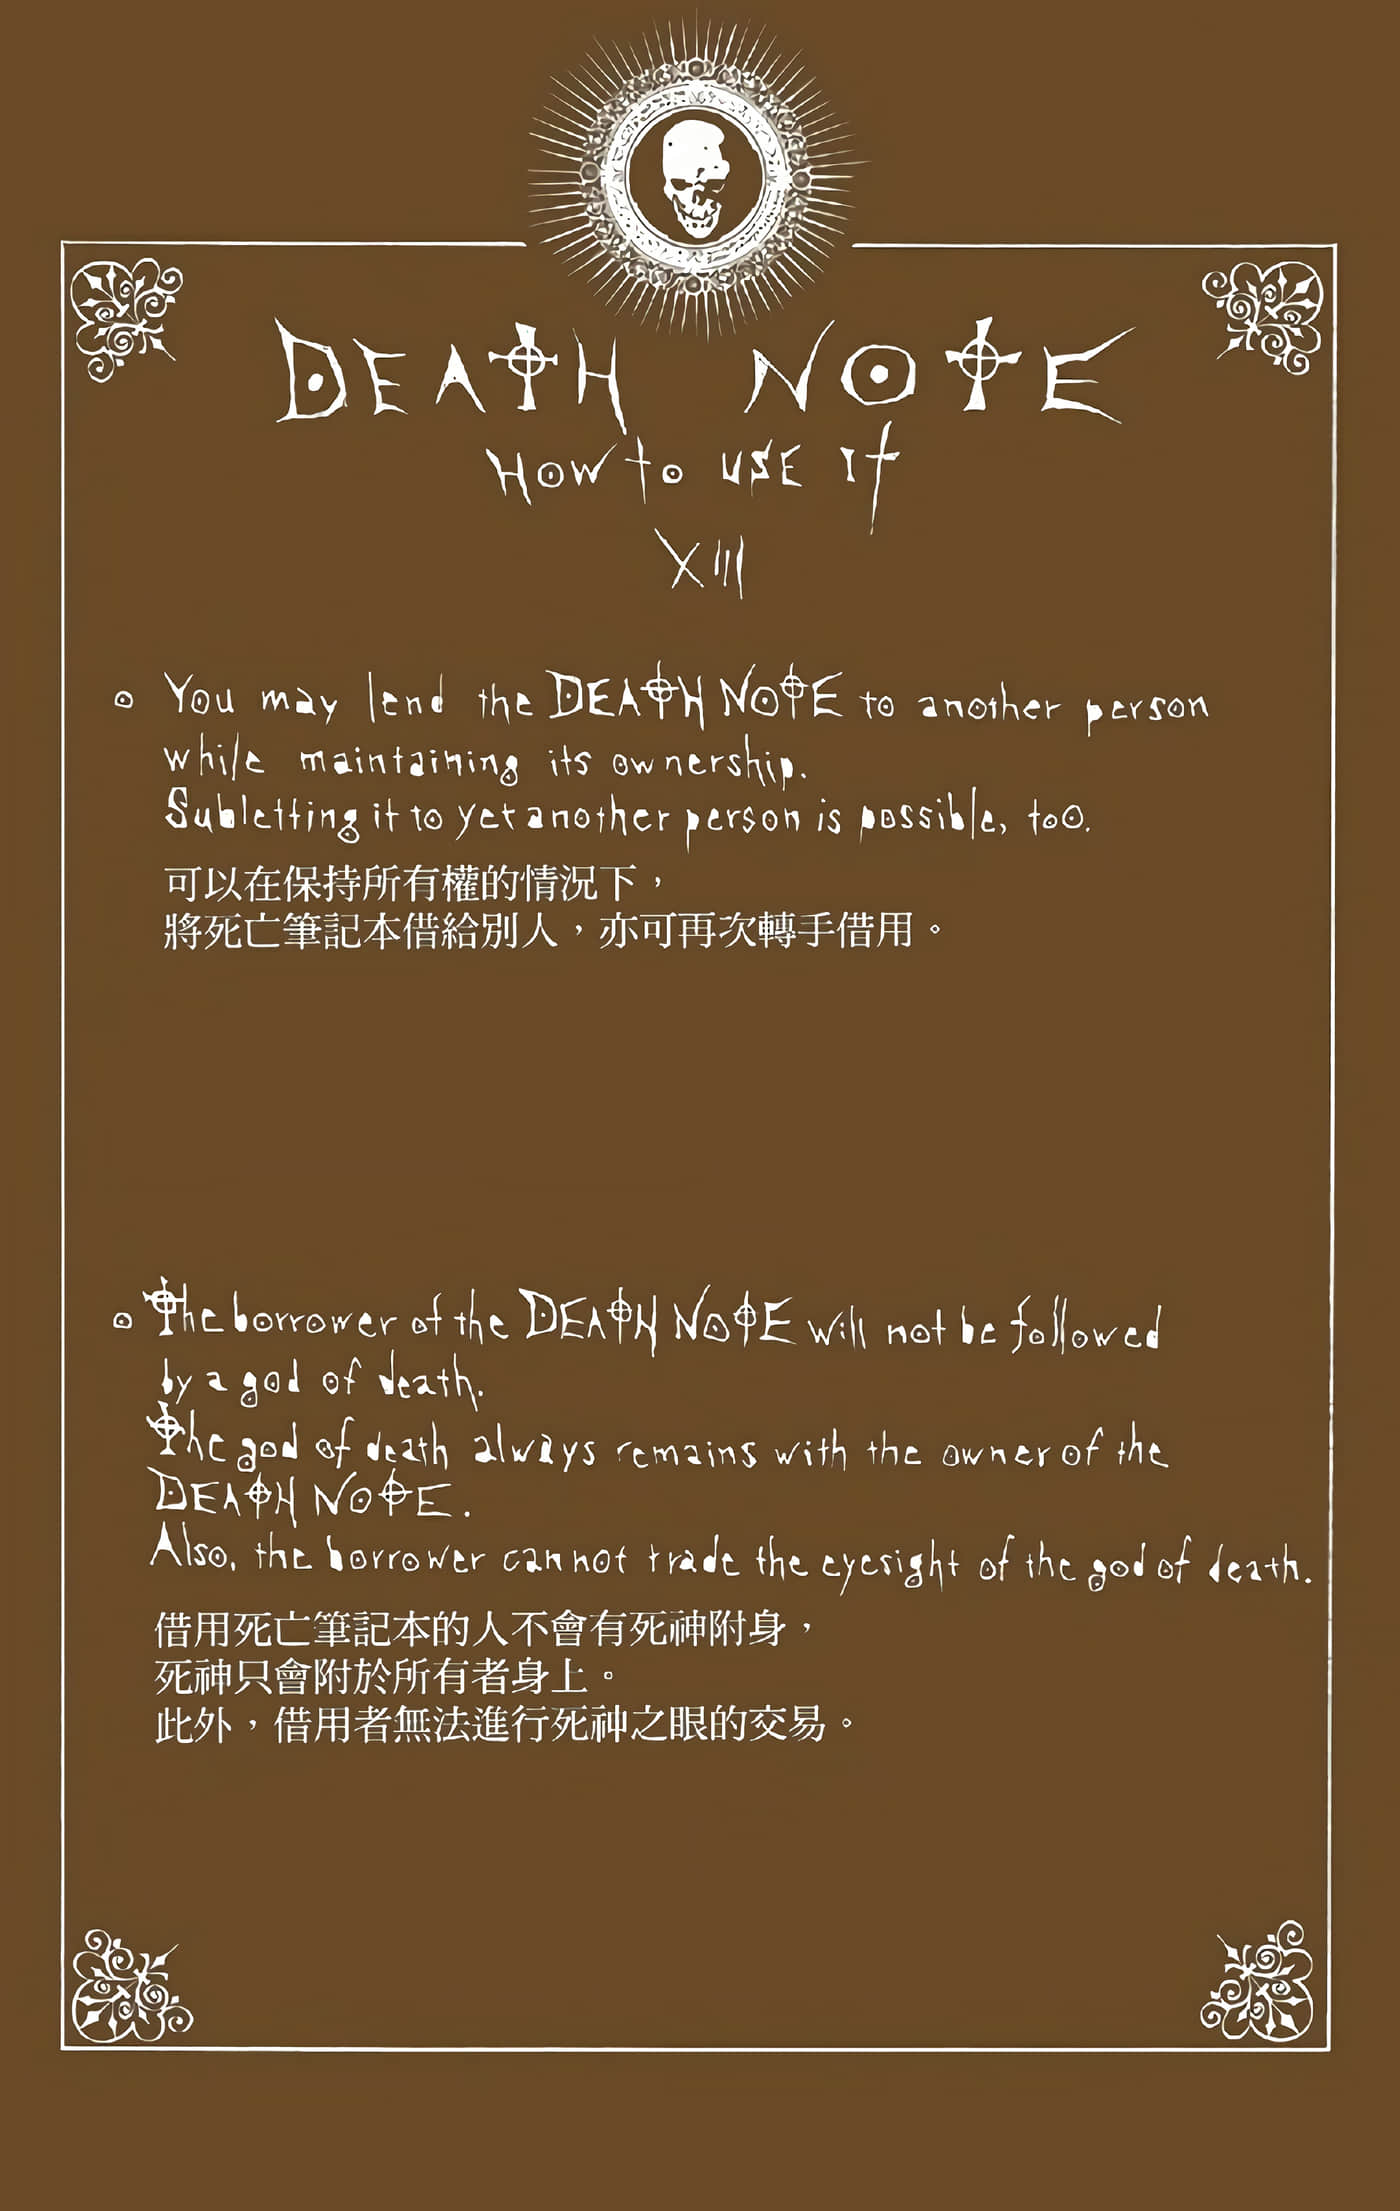 DEATH NOTE
HOW to USE It
XIII
You may lend the DEATH NOTE to another person
while maintaining its ownership.
Subletting it to yet another person is possible, too.
可以在保持所有權的情況下，
將死亡筆記本借給別人，亦可再次轉手借用。
The borrower of the DEATH NOTE will not be followed
by a god of death.
The god of death always remains with the owner of the
DEATH NOTE.
Also, the borrower cannot trade the eyesight of the god of death.
借用死亡筆記本的人不會有死神附身，
死神只會附於所有者身上。
此外，借用者無法進行死神之眼的交易。